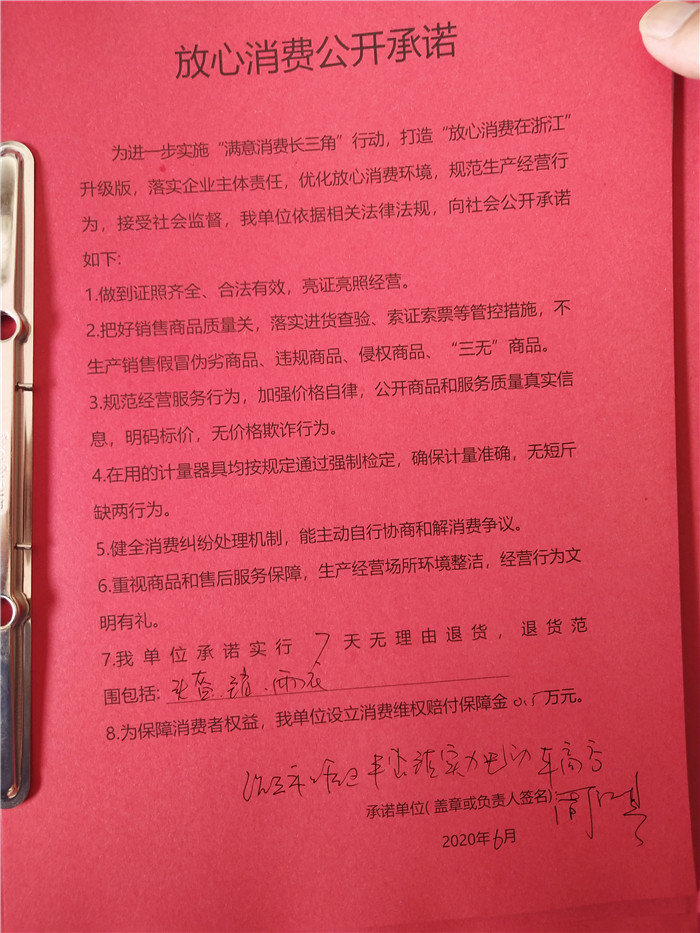 放心消费公开承诺
为进一步实施“满意消费长三角”行动，打造“放心消费在浙江”
升级版，落实企业主体责任，优化放心消费环境，规范生产经营行
为，接受社会监督，我单位依据相关法律法规，向社会公开承诺
如下:
1.做到证照齐全、合法有效，亮证亮照经营。
2.把好销售商品质量关，落实进货查验、索证索票等管控措施，不
生产销售假冒伪劣商品、违规商品、侵权商品、“三无”商品。
3.规范经营服务行为，加强价格自律，公开商品和服务质量真实信
息，明码标价，无价格欺诈行为。
4.在用的计量器具均按规定通过强制检定，确保计量准确，无短斤
缺两行为。
5.健全消费纠纷处理机制，能主动自行协商和解消费争议。
6.重视商品和售后服务保障，生产经营场所环境整洁，经营行为文
明有礼。
7.我单位承诺实行 7 天无理由退货，退货范
围包括: 头盔 锁.雨衣
8.为保障消费者权益，我单位设立消费维权赔付保障金 0.5 万元。
电动车商行
承诺单位( 盖章或负责人签名)
2020年6月